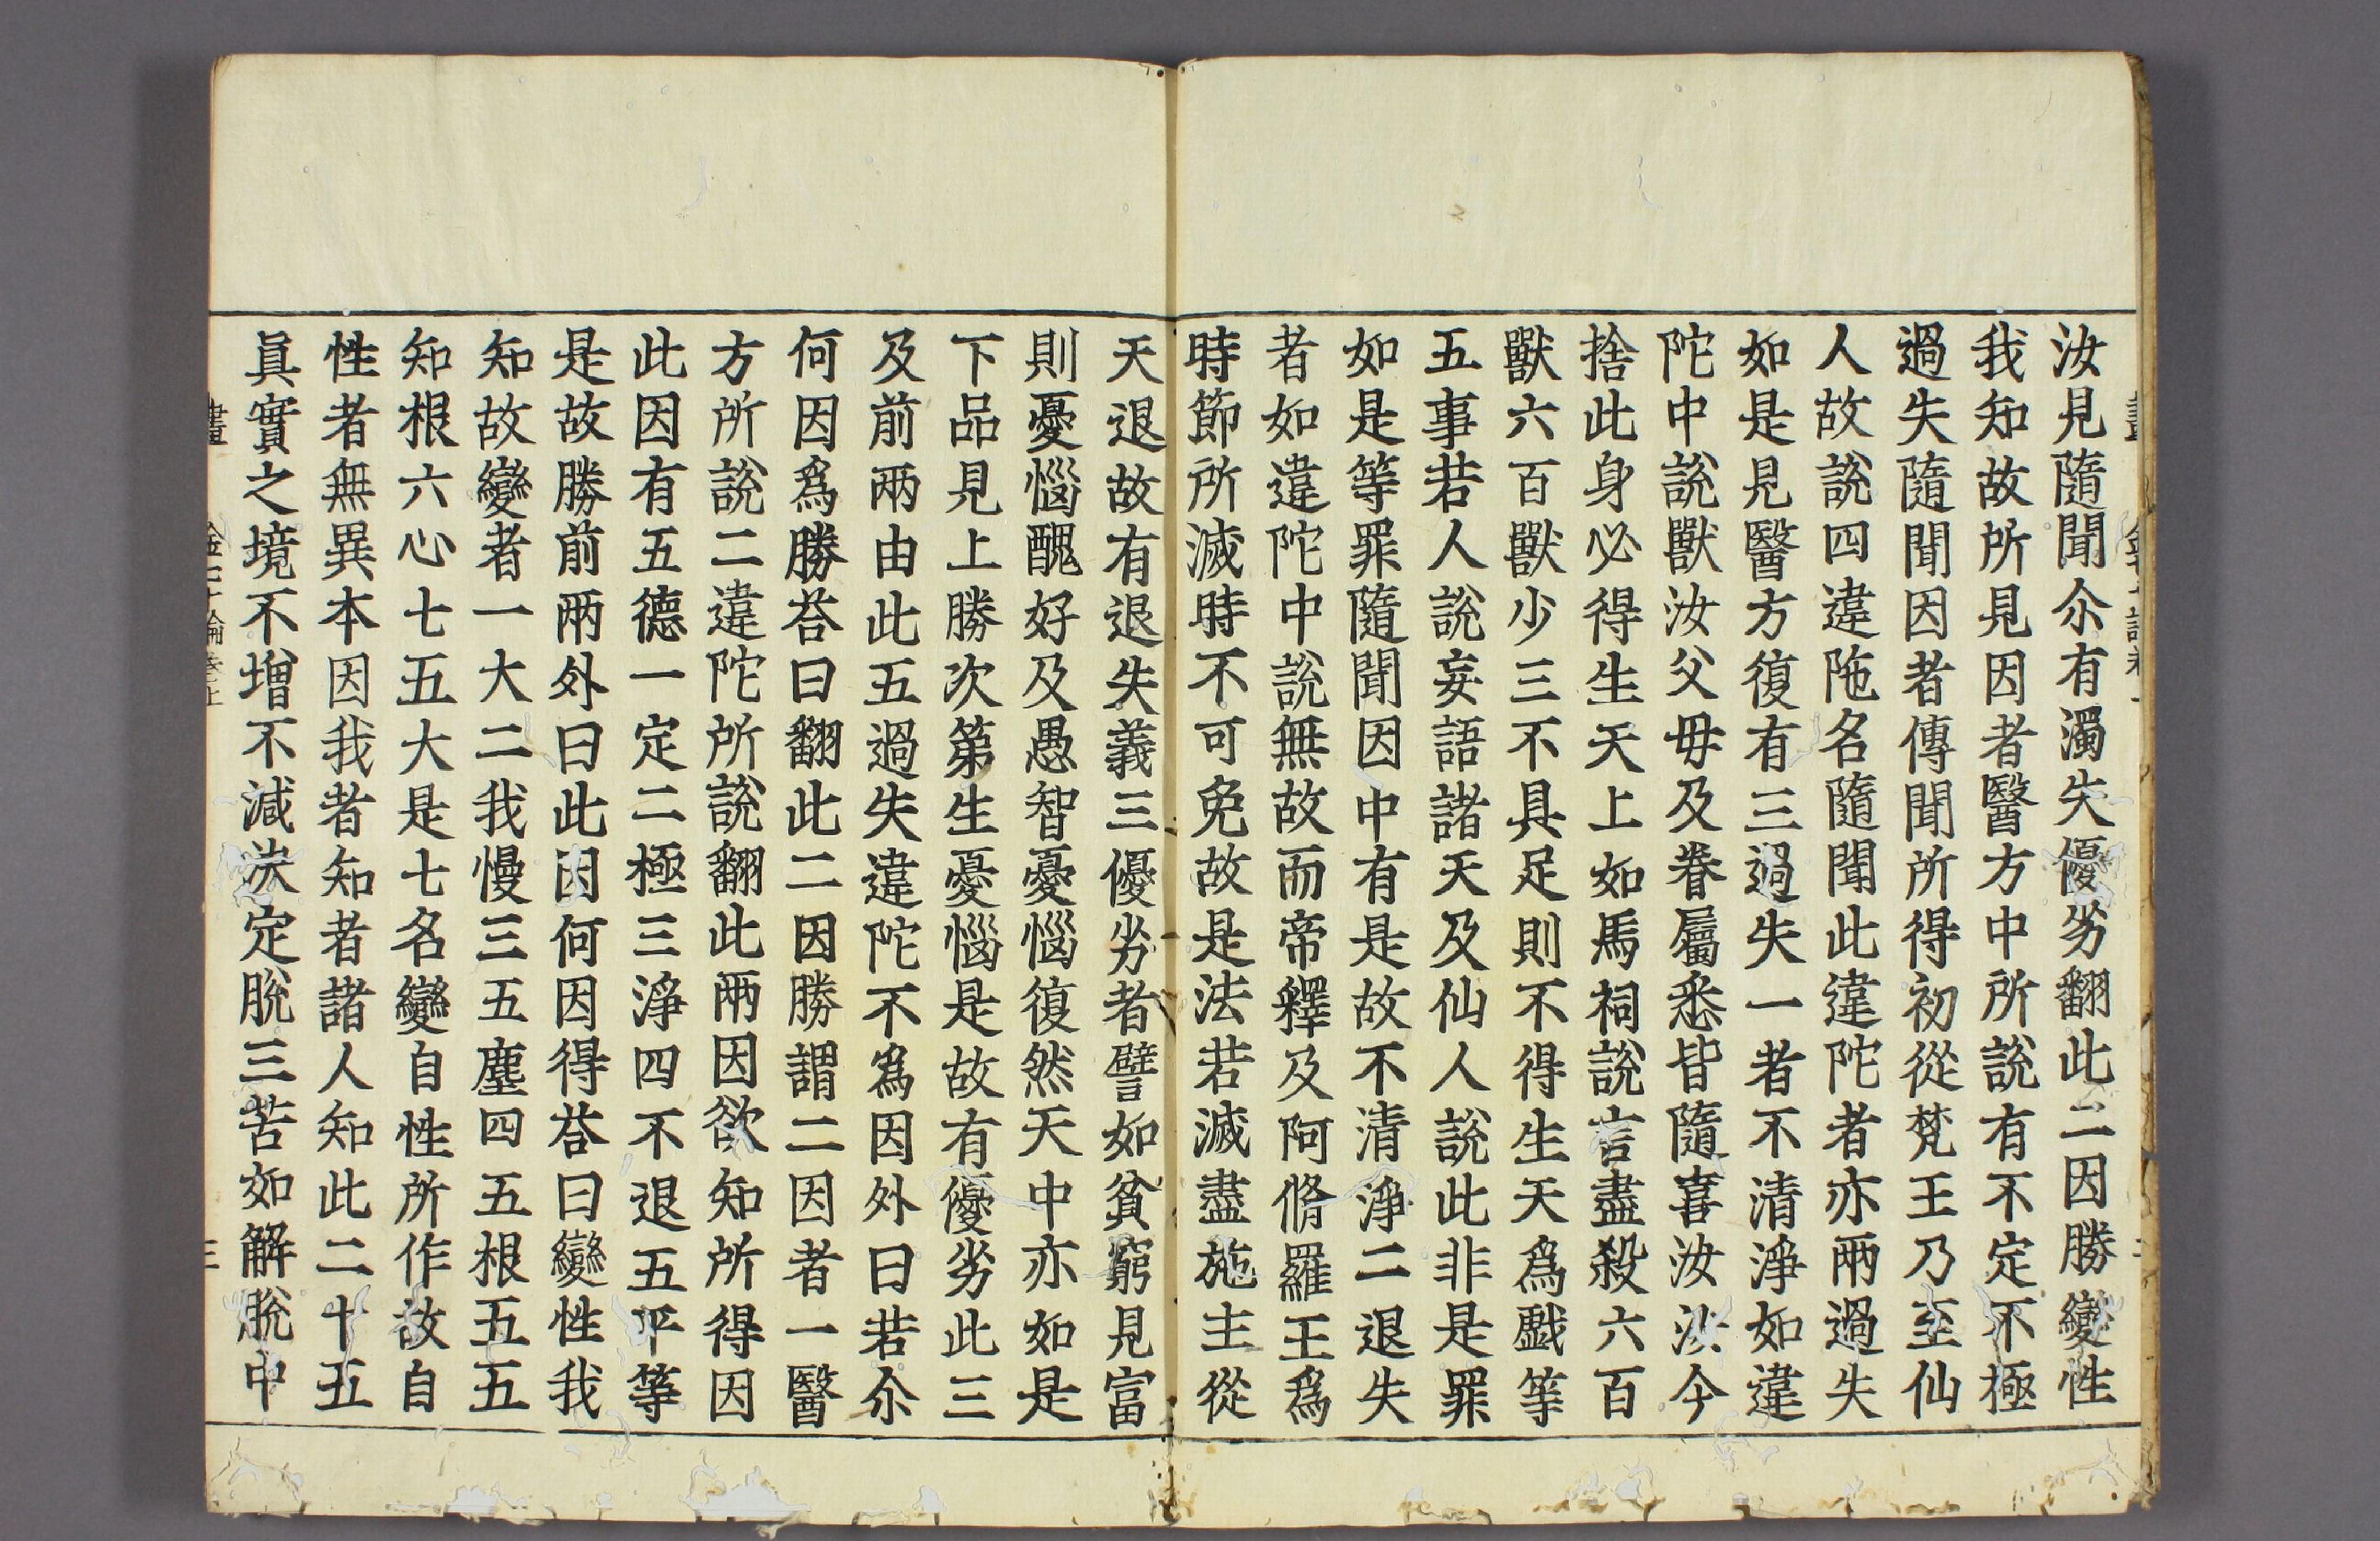 汝見隨聞尒有濁失優劣翻此二因勝變性
我知故所見因者醫方中所說有不定不極
過失隨聞因者傳聞所得初從梵王乃至仙
人故說四違陁名隨聞此違陀者亦兩過失
如是見醫方復有三過失一者不清淨如違
陀中說獸汝父毋及眷屬悉皆隨喜汝汝今
捨此身必得生天上如馬祠說言盡殺六百
獸六百獸少三不具足則不得生天爲戲等
五事若人說妄語諸天及仙人說此非是罪
如是等罪隨聞因中有是故不清淨二退失
者如違陀中說無故而帝釋及阿脩羅王爲
時節所滅時不可免故是法若滅盡施主從
天退故有退失義三優劣者譬如貧窮見富
則憂惱醜好及愚智憂惱復然天中亦如是
下品見上勝次第生憂惱是故有優劣此三
及前兩由此五過失違陀不爲因外曰若尒
何因爲勝荅曰翻此二因勝謂二因者一醫
方所說二違陀所說翻此兩因欲知所得因
此因有五德一定二極三淨四不退五平等
是故勝前兩外曰此因何因得荅曰變性我
知故變者一大二我慢三五塵四五根五五
知根六心七五大是七名變自性所作故自
性者無異本因我者知者諸人知此二十五
眞實之境不增不減決定脫三苦如解脫中
畫 金七十論卷上 三